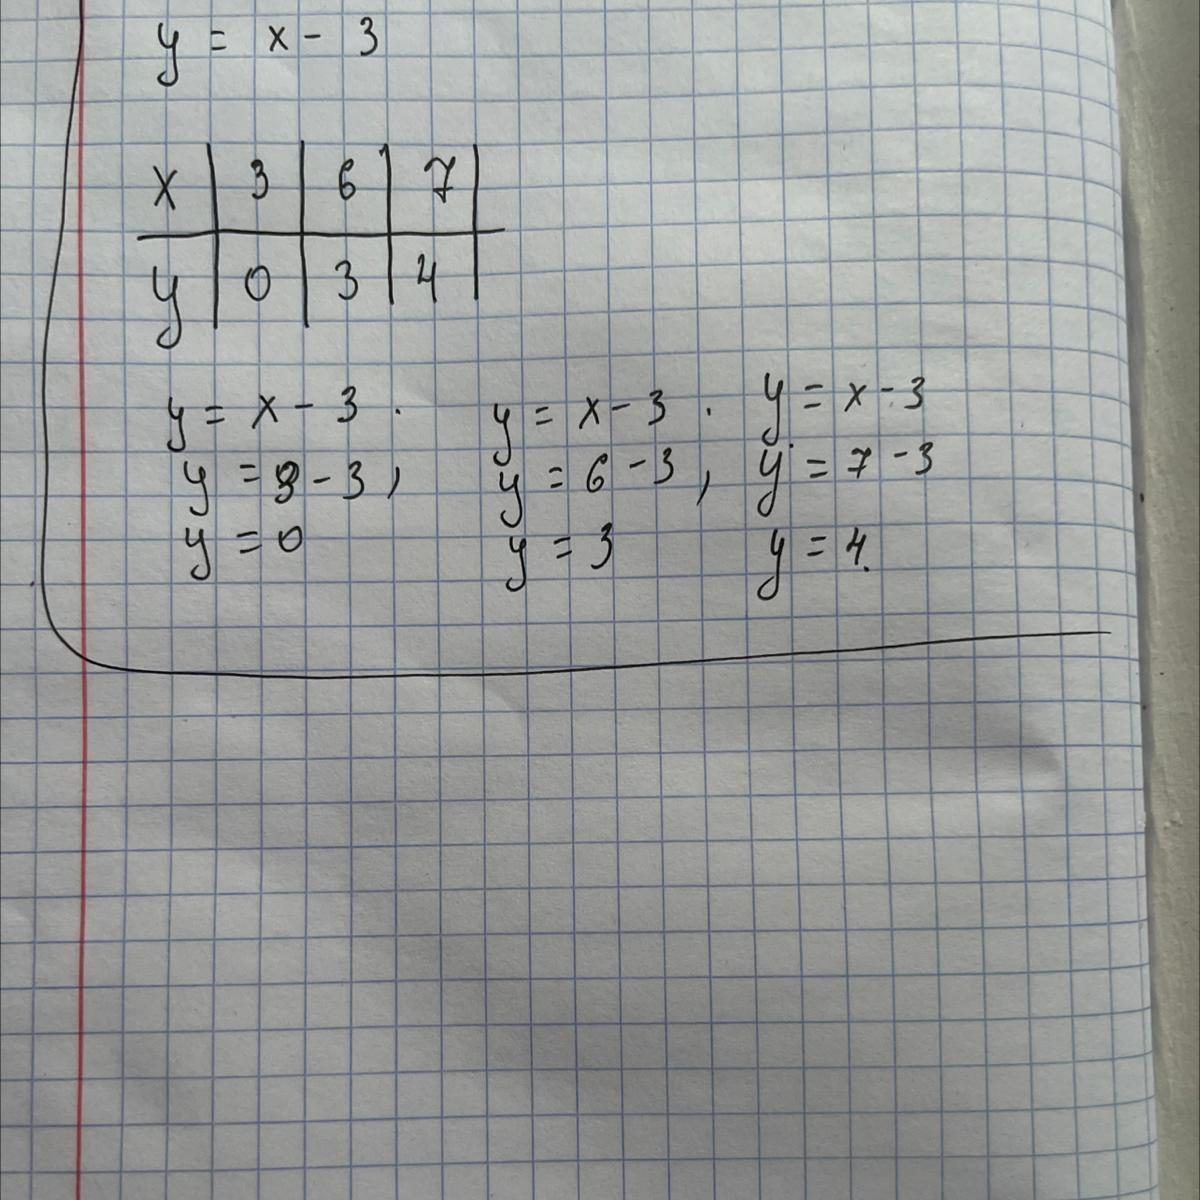 y = x - 3
x | 3 | 6 | 7
y | 0 | 3 | 4
y = x - 3 . y = x - 3 . y = x - 3
y = 3 - 3 , y = 6 - 3 , y = 7 - 3
y = 0 y = 3 y = 4.